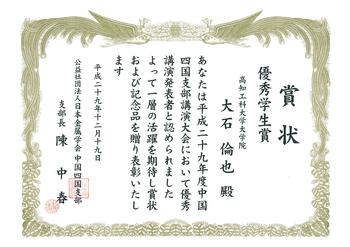 賞状
優秀学生賞
高知工科大学大学院
大石倫也殿
あなたは平成二十九年度中国
四国支部講演大会において優秀
講演発表者と認められました
よって一層の活躍を期待し賞状
および記念品を贈り表彰いたし
ます
平成二十九年十二月十九日
公益社団法人日本金属学会中国四国支部
支部長 陳中春